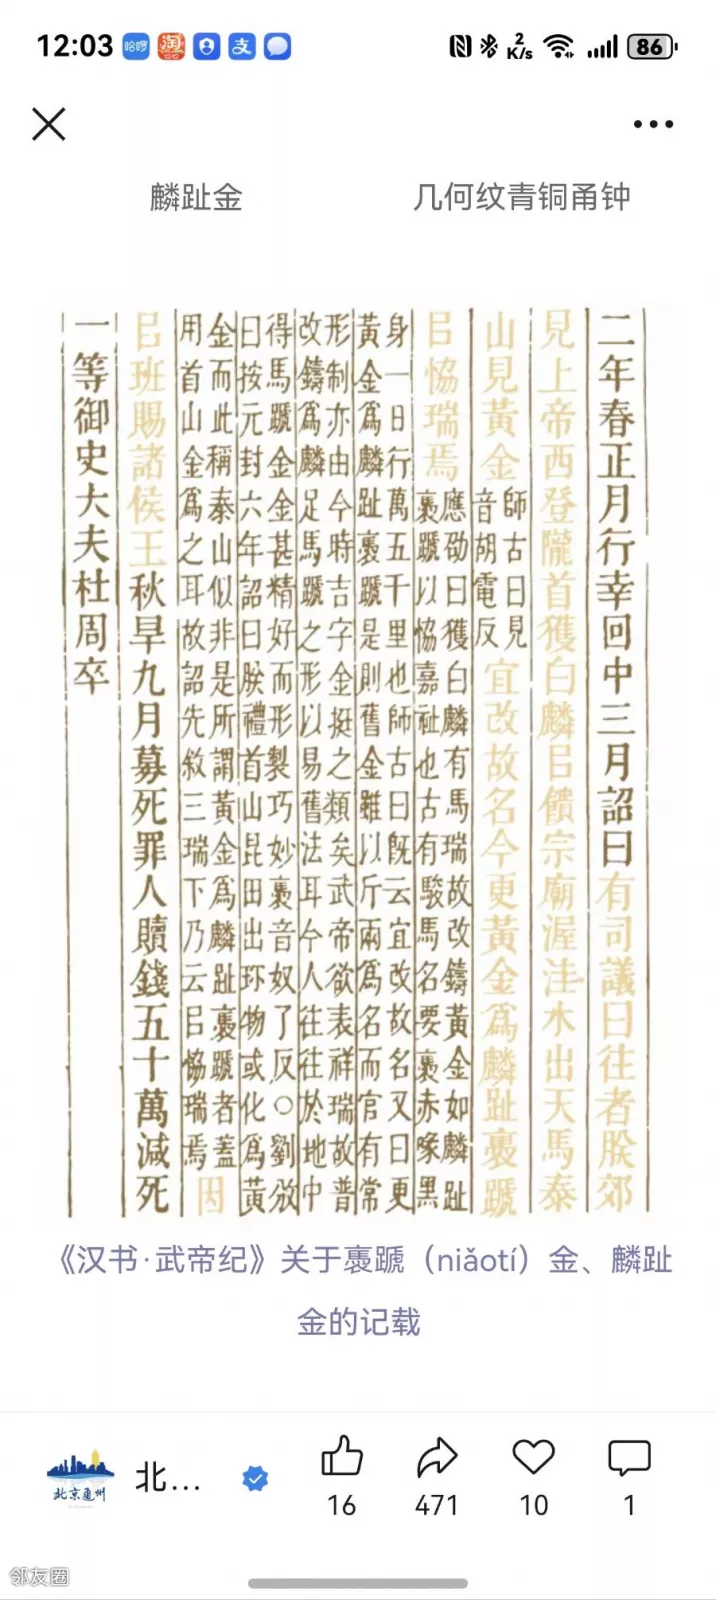 12:03
哈啰
淘
12.12
支
2
K/s
86
麟趾金
几何纹青铜甬钟
二年春正月行幸回中三月詔曰有司議曰往者朕郊
見上帝西登隴首獲白麟㠯饋宗廟渥洼水出天馬泰
山見黃金
師古曰見
音胡電反
宜改故名今更黃金爲麟趾褭蹏
㠯恊瑞焉
應劭曰獲白麟有馬瑞故改鑄黃金如麟趾
褭蹏以恊嘉祉也古有駿馬名要褭赤喙黑
身一日行萬五千里也師古曰既云宜改故名又曰更
黃金爲麟趾褭蹏是則舊金雖以斤兩爲名而官有常
形制亦由今時吉字金挺之類矣武帝欲表祥瑞故普
改鑄爲麟足馬蹏之形以易舊法耳今人往往於地中
得馬蹏金金甚精好而形製巧妙褭音奴了反○劉攽
曰按元封六年詔曰朕禮首山昆田出珎物或化爲黃
金而此稱泰山似非是所謂黃金爲麟趾褭蹏者蓋
用首山金爲之耳故詔先敘三瑞下乃云㠯恊瑞焉
因
㠯班賜諸侯王秋旱九月募死罪人贖錢五十萬減死
一等御史大夫杜周卒
《汉书·武帝纪》关于褭蹏（niǎotí）金、麟趾
金的记载
北京通州
北...
16
471
10
1
邻友圈